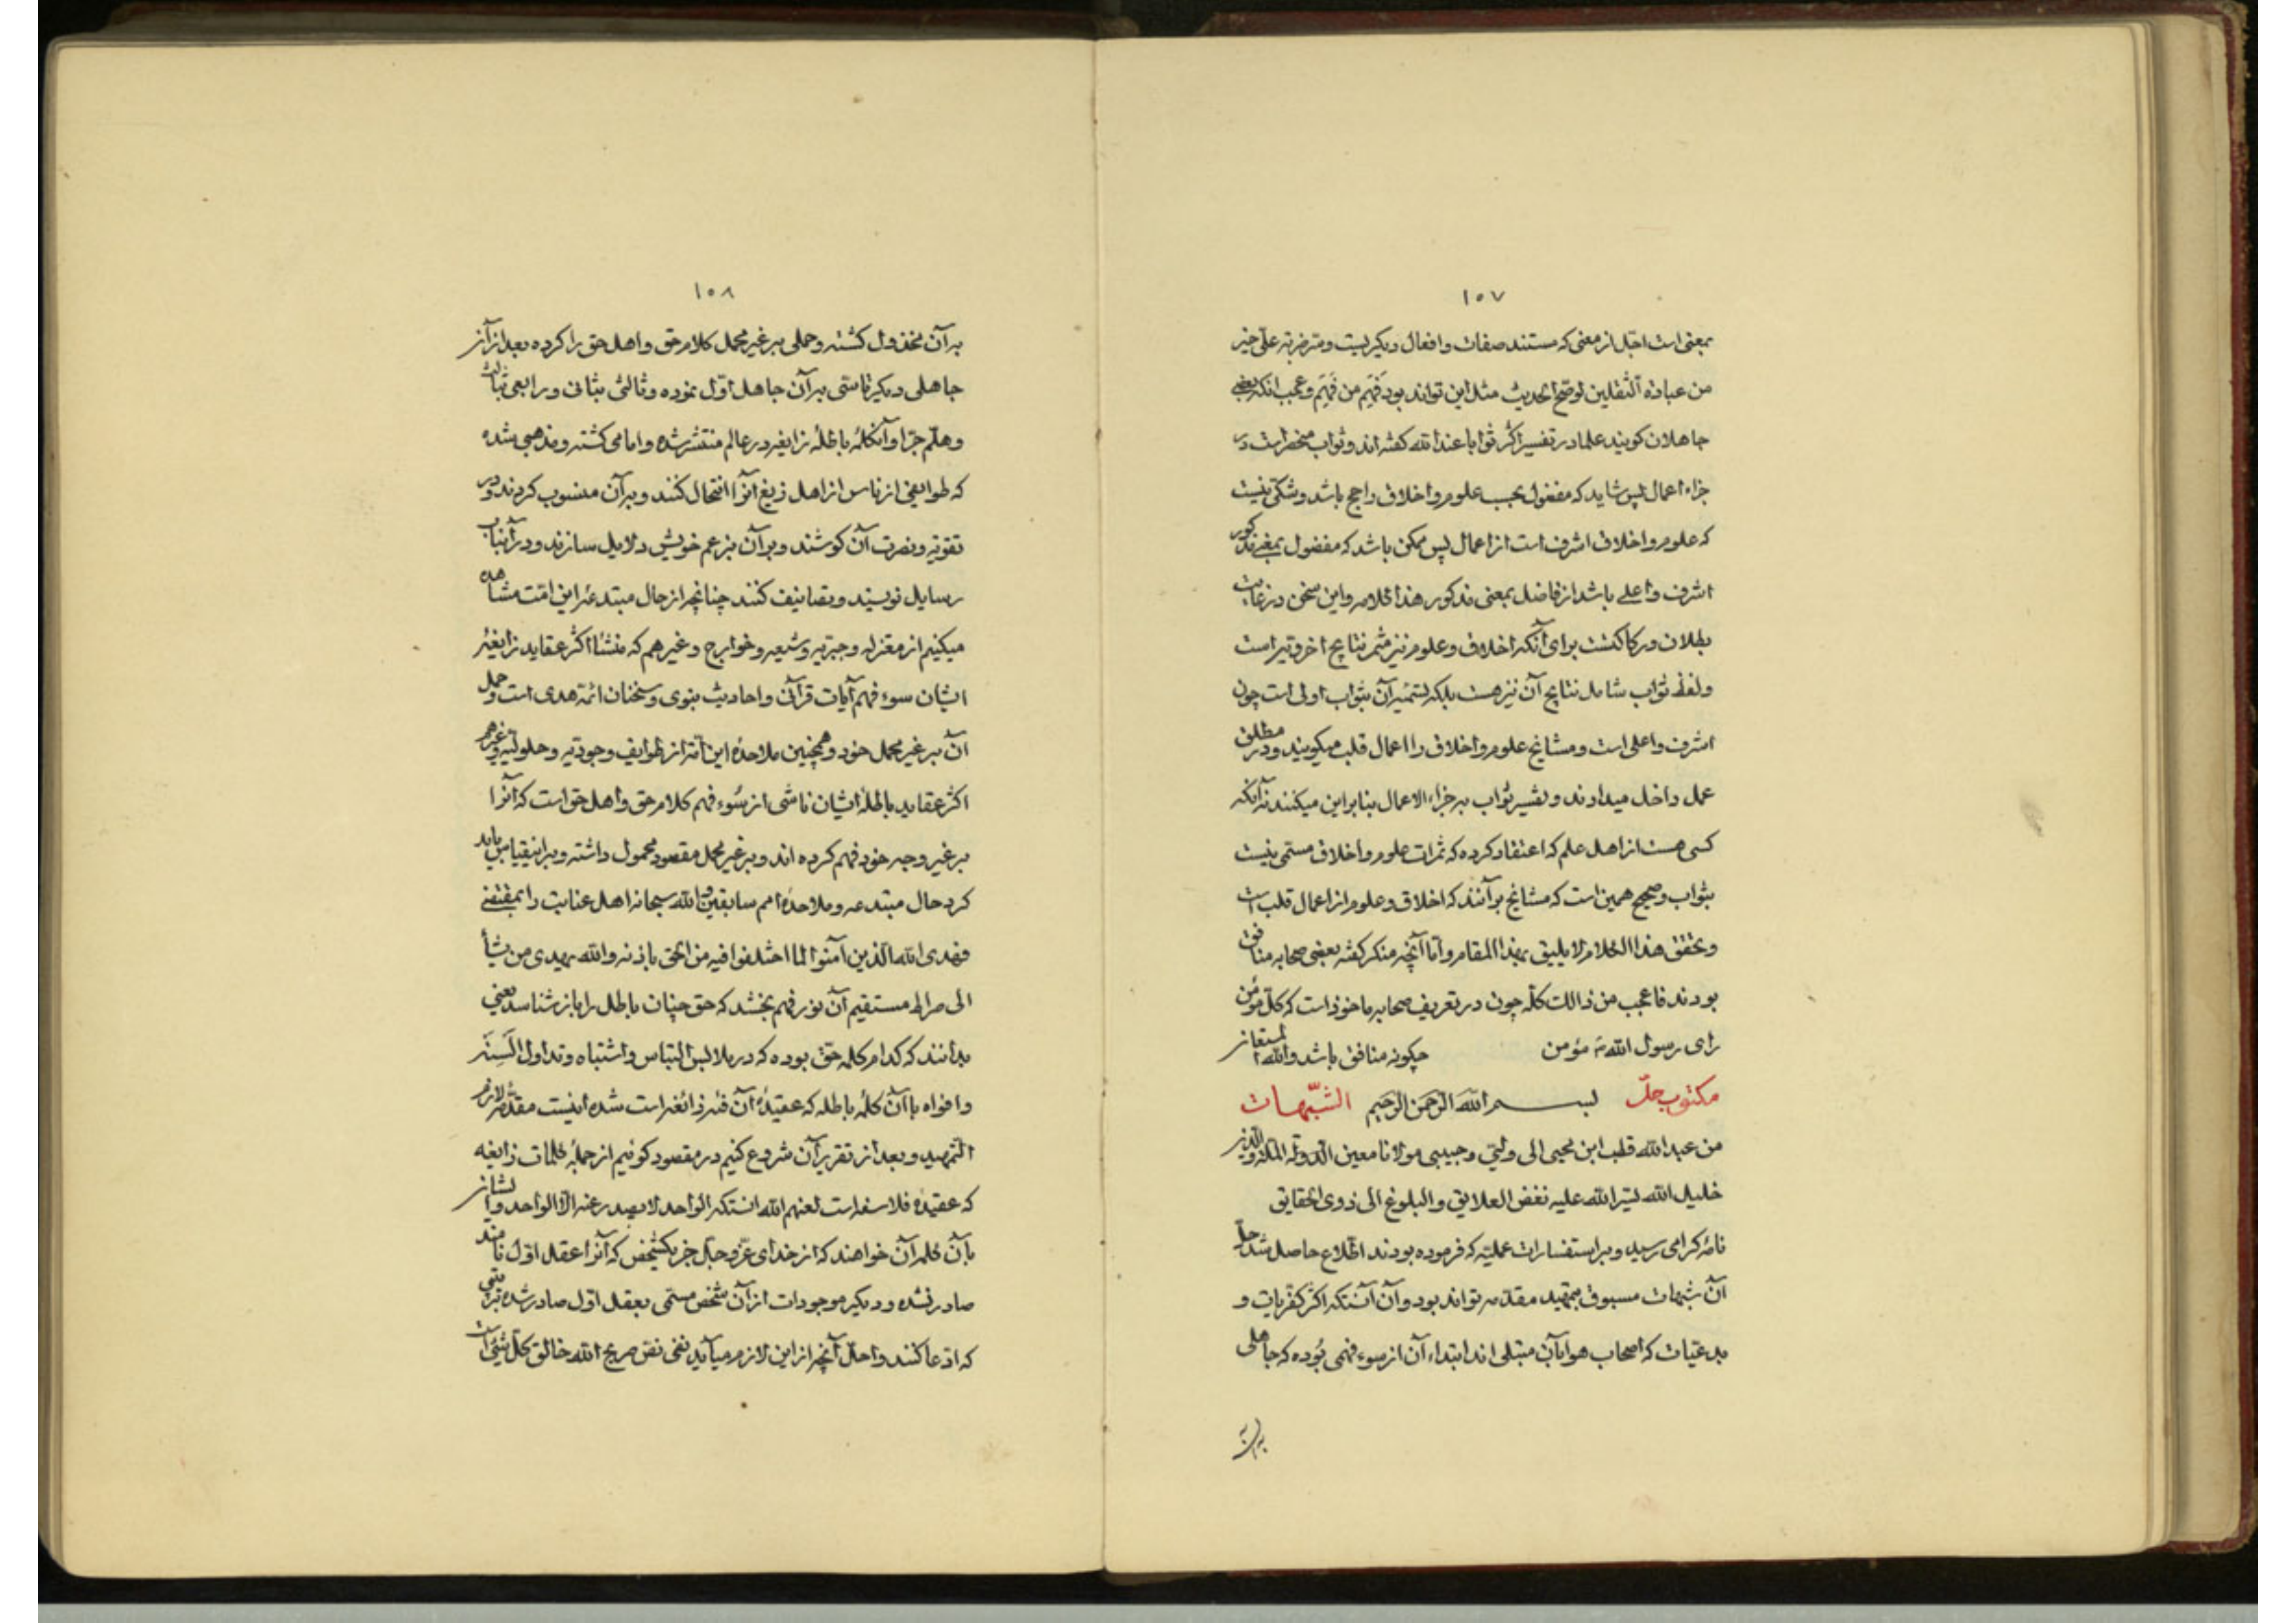 ۱۵۷
بمعنی است اجل از معنی که مستند صفات و افعال دیگریست و مترضربة علی خیر
من عبادة الثقلین لوضح الحدیث مثل این تواند بود فَهِمَ من فَهِمَ و عجب انکه بعضی
جاهلان کویند علما در تفسیر اکثر ثوابا عند الله کفته اند و ثواب منحصر است در
جزاء اعمال پس شاید که مفضول بحسب علوم و اخلاق راجح باشد و شکی نیست
که علوم و اخلاق اشرف است از اعمال پس ممکن باشد که مفضول بمعنی مذکور
اشرف و اعلی باشد از فاضل بمعنی مذکور هذا کلامه و این سخن در غایت
بطلان و رکاکتست برای آنکه اخلاق و علوم نیز مثمر نتایج اخرویه است
و لفظ ثواب شامل نتایج آن نیز هست بلکه تسمیه آن بثواب اولی است چون
اشرف و اعلی است و مشایخ علوم و اخلاق را اعمال قلب میکویند و در مطلق
عمل داخل میدارند و تفسیر ثواب به جزاء الاعمال بنا براین میکنند نه آنکه
کسی هست از اهل علم که اعتقاد کرده که ثمرات علوم و اخلاق مسمی نیست
بثواب و صحیح همین است که مشایخ برآنند که اخلاق و علوم از اعمال قلب است
و تحقق هذا الکلام لا یلیق بهذا المقام و اما آنچه منکر کفته بعضی صحابه منافق
بودند فاعجب من ذالک کله چون در تعریف صحابه ماخوذ است که کل مؤمن
رای رسول الله مؤمن چکونه منافق باشد والله المستعان
مکتوب حلّ بسم الله الرحمن الرحیم الشبّهات
من عبدالله قطب ابن محیی الی ولیی و حبیبی مولانا معین الدولة الملة والدین
خلیل الله یسّر الله علیه نفض العلایق والبلوغ الی ذوی الحقایق
نامهٔ کرامی رسید و بر استفسارات عملیّه که فرموده بودند اطلاع حاصل شد حلّ
آن شبهات مسبوق بتمهید مقدمه تواند بود و آن آنستکه اکثر کفریات و
بدعتیات که اصحاب هوا بآن مبتلی اند ابتداء آن از سوء فهمی بوده که جاهلی
بر آن
۱۵۸
بر آن مخذول کشته و حملی بر غیر محمل کلام حق و اهل حق را کرده بعد از آن
جاهلی دیکر تاسّی برآن جاهل اوّل نموده و ثالثی بثانی و رابعی بثالث
و هلّم جرّا و آنکلمهٔ باطلهٔ زایغه در عالم منتشر شده و امامی کشته و مذهبی شده
که طوایفی از ناس از اهل زیغ آنرا انتحال کنند و برآن منسوب کردند و در
تقویه و نصرت آن کوشند و برآن بزعم خویش دلایل سازند و درآنباب
رسایل نویسند و تصانیف کنند چنانچه از حال مبتدعهٔ این امّت مشاهده
میکنیم از معتزله و جبریه و شیعه و خوارج و غیرهم که منشأ اکثر عقاید زایغهٔ
ایشان سوء فهم آیات قرآنی و احادیث نبوی و سخنان ائمّه هدی است و حمل
آن بر غیر محمل خود و همچنین ملاحدهٔ این امّة از طوایف وجودیّه و حلولیّه و غیرهم
اکثر عقاید باطلهٔ ایشان ناشی از سُوء فهم کلام حق و اهل حق است که آنرا
بر غیر وجه خود فهم کرده اند و بر غیر محمل مقصود محمول داشته و براینقیاس باید
کرد حال مبتدعه و ملاحدهٔ امم سابقین و الله سبحانه اهل عنایت را بمقتضی
فهدی الله الذین آمنوا لما اختلفوا فیه من الحق باذنه والله یهدی من یشأ
الی صراط مستقیم آن نور فهم بخشد که حق چنان باطل را باز شناسد یعنی
بدانند که کدام کلمه حقّ بوده که در ملابس التباس و اشتباه و تداول السنه
و افواه باآن کلمهٔ باطله که عقیدهٔ آن فئهٔ زائغه است شده اینست مقدّمة لازم
التمهید و بعد از تقریر آن شروع کنیم در مقصود کوئیم از جملهٔ کلمات زایغه
که عقیدهٔ فلاسفه است لعنهم الله انستکه الواحد لا یصدر عنه الا الواحد و ایشان
بآن کلمه آن خواهند که از خدای عزّ و جلّ جز یکشخص که آنرا عقل اوّل نامند
صادر نشده و دیکر موجودات ازآن شخص مسمّی بعقل اوّل صادر شده
که ادّعا کنند و اجلّ آنچه از این لازم میآید نفی نصّ صریح الله خالق کلّ شیئ است